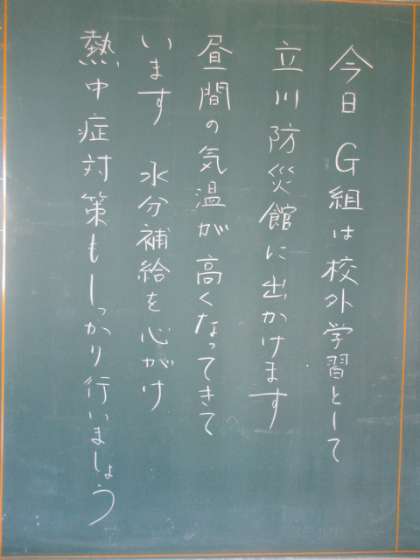 今日 G組は校外学習として
立川防災館に出かけます
昼間の気温が高くなってきて
います 水分補給を心がけ
熱中症対策もしっかり行いましょう